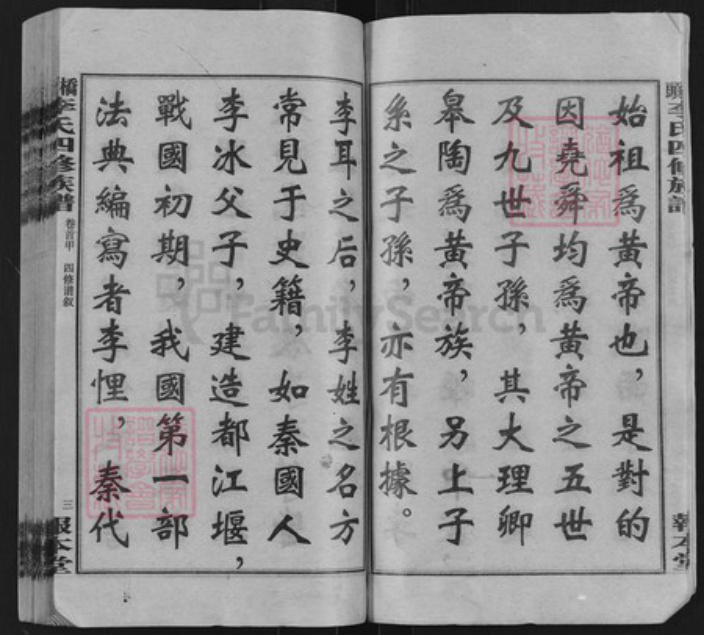 始祖爲黃帝也，是對的
因堯舜均爲黃帝之五世
及九世子孫，其大理卿
皋陶爲黃帝族，另上子
系之子孫，亦有根據。
李耳之后，李姓之名方
常見于史籍，如秦國人
李冰父子，建造都江堰，
戰國初期，我國第一部
法典編寫者李悝，秦代
頭李氏四修族譜
報本堂
橋李氏四修族譜
卷首甲 四修譜敘
三
報本堂
FamilySearch